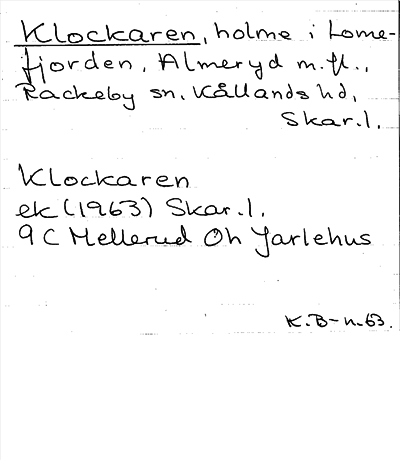 Klockaren, holme i Lome-
fjorden, Almeryd m.fl.,
Rackeby sn. Kållands hd,
Skar.l.
Klockaren
ek (1963) Skar.l.
9 C Mellerud Öh Jarlehus
K.B-n.63.